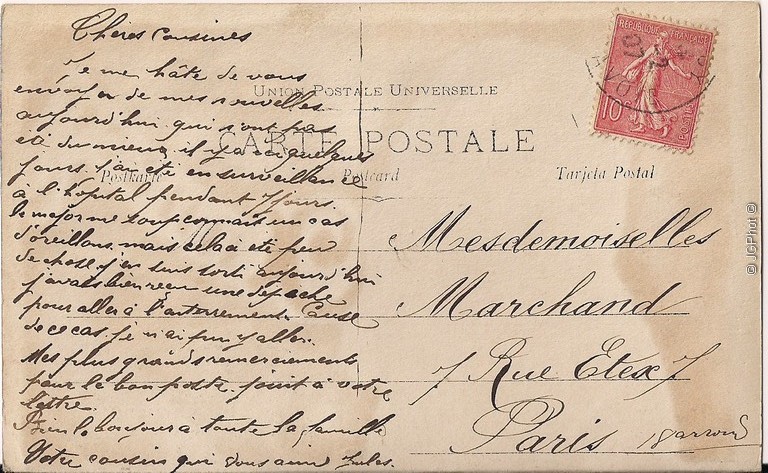 Chères cousines
Je me hâte de vous
envoyer de mes nouvelles
aujourd'hui qui sont pas
été du mieux, il y a quelques
jours. j'ai été en surveillance
à l'hopital pendant 7 jours.
le major me soupçonnait un cas
d'oreillons. mais cela a été peu
de chose j'en suis sorti aujourd'hui
j'avais bien reçu une dépêche
pour aller à l'enterrement. Cause
de ce cas je n'ai pu y aller.
Mes plus grands remerciements
pour le bon poste joint à votre
lettre.
Bien le bonjour à toute la famille
Votre cousin qui vous aime Jules.
UNION POSTALE UNIVERSELLE
CARTE POSTALE
Postkarte Postcard Tarjeta Postal
REPUBLIQUE FRANÇAISE
10
POSTES
Mesdemoiselles
Marchand
7 Rue Etex 7
Paris
18 arrond
© JGPhot ©